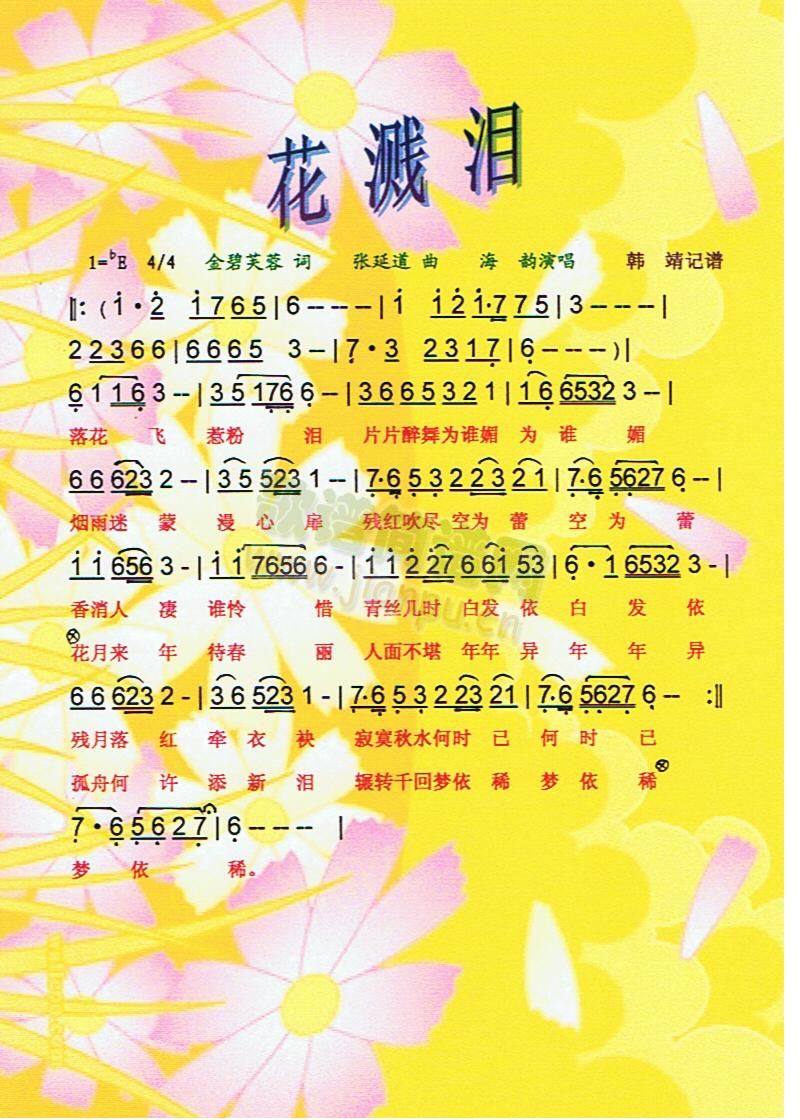 花溅泪
1=♭E 4/4 金碧芙蓉 词 张延道 曲 海 韵演唱 韩 靖记谱
‖: ( 1̇ · 2̇ 1̇ 7 6 5 | 6 - - - - | 1̇ 1̇ 2̇ 1̇ · 7 7 5 | 3 - - - - |
2 2 3 6 6 | 6 6 6 5 3 - - | 7̣ · 3 2 3 1 7̣ | 6̣ - - - - ) |
6̣ 1 1 6̣ 3 - - | 3 5 1 7̣ 6̣ 6̣ - - | 3 6 6 5 3 2 1 | 1 6̣ 6532 3 - - |
落花 飞 惹粉 泪 片片醉舞为谁媚 为 谁 媚
6 6 623 2 - - | 3 5 523 1 - - | 7̣ · 6̣ 5̣ 3 2 2 3 2 1 | 7̣ · 6̣ 5̣6̣27̣ 6̣ - - |
烟雨迷 蒙 漫 心 扉 残红吹尽 空为 蕾 空 为 蕾
1̇ 1̇ 656 3 - | 1̇ 1̇ 7656 6 - - | 1̇ 1̇ 2̇ 2̇7 6 61̇ 53 | 6̣ · 1 6532 3 - |
香消人 凄 谁怜 惜 青丝几时 白发 依 白 发 依
花月来 年 待春 丽 人面不堪 年年 异 年 年 异
6 6 623 2 - | 3 6 523 1 - | 7̣ · 6̣ 5̣ 3 2 23 21 | 7̣ · 6̣ 5̣6̣27̣ 6̣ - - :‖
残月落 红 牵 衣 袂 寂寞秋水何时 已 何 时 已
孤舟何 许 添 新 泪 辗转千回梦依 稀 梦 依 稀
7̣ · 6̣ 5̣ 6̣ 2 7̣ | 6̣ - - - - |
梦 依 稀。
歌谱简谱网
www.jianpu.cn